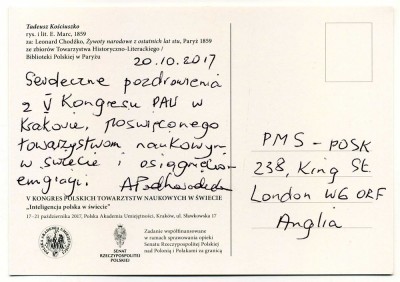 Tadeusz Kościuszko
rys. i lit. E. Marc, 1859
za: Leonard Chodźko, Żywoty narodowe z ostatnich lat stu, Paryż 1859
ze zbiorów Towarzystwa Historyczno-Literackiego /
Biblioteki Polskiej w Paryżu
20.10.2017
Serdeczne pozdrowienia
z V Kongresu PAU w
Krakowie, poświęconego
towarzystwom naukowym
w świecie i osiągnięciom
emigracji.
V KONGRES POLSKICH TOWARZYSTW NAUKOWYCH W ŚWIECIE
„Inteligencja polska w świecie"
17–21 października 2017, Polska Akademia Umiejętności, Kraków, ul. Sławkowska 17
SENAT
RZECZYPOSPOLITEJ
POLSKIEJ
Zadanie współfinansowane
w ramach sprawowania opieki
Senatu Rzeczypospolitej Polskiej
nad Polonią i Polakami za granicą
PMS - POSK
238, King St.
London W6 0RF
Anglia